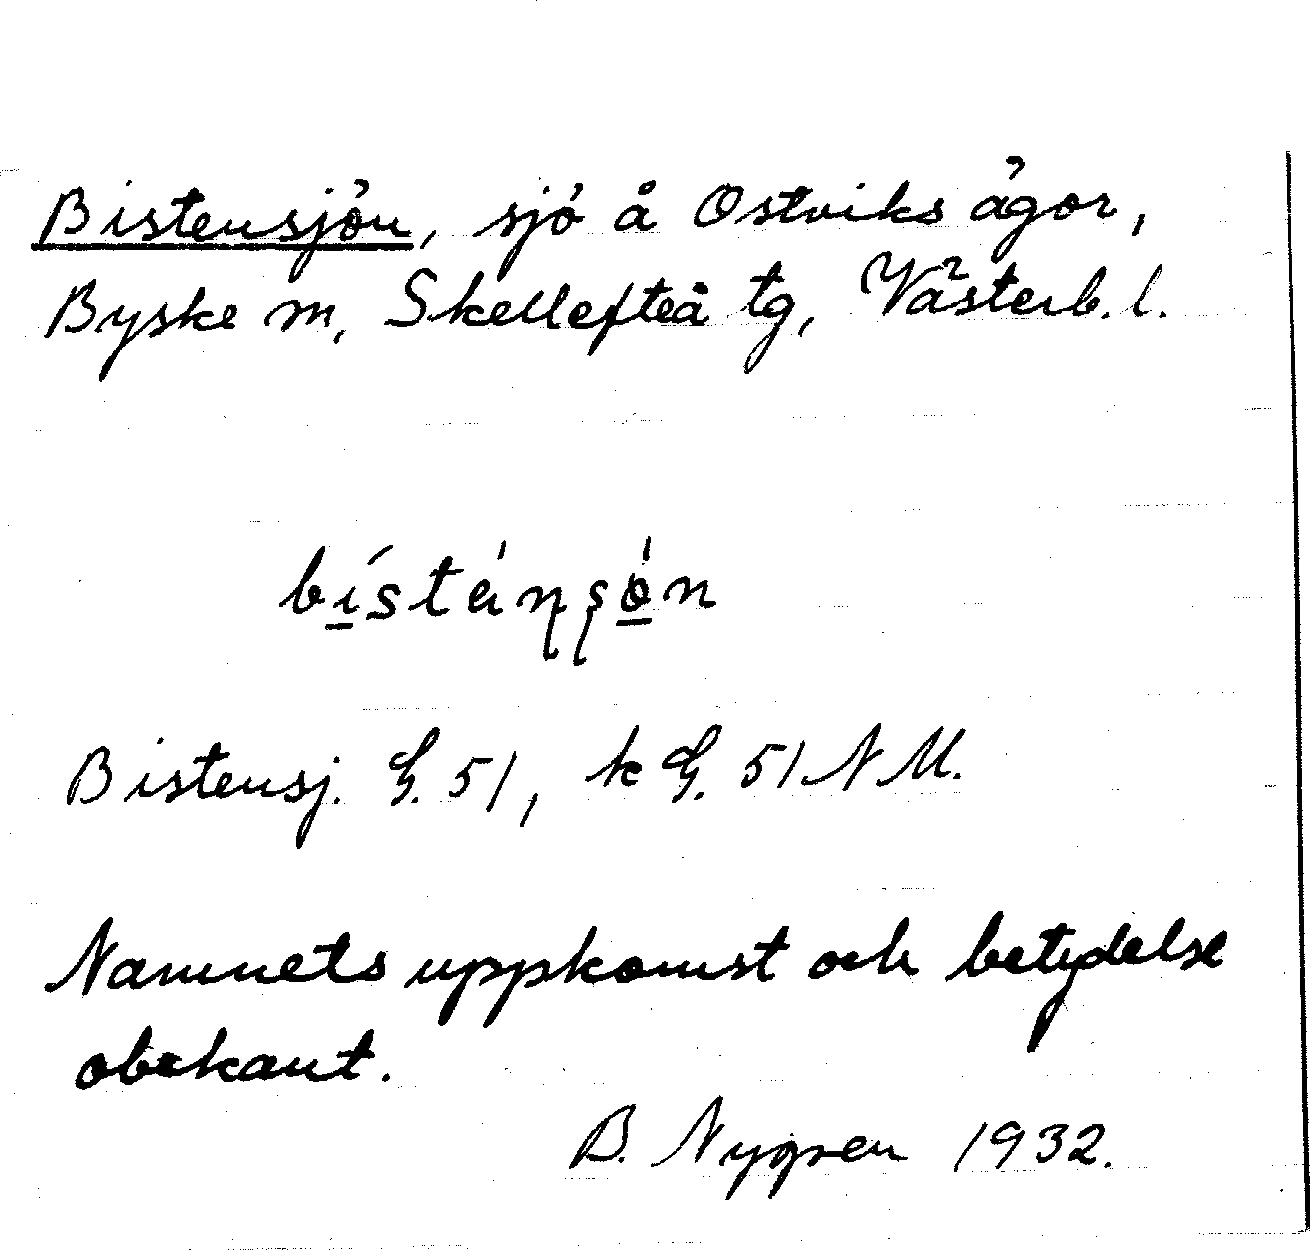 Bistensjön, sjö å Ostviks ägor,
Byske m, Skellefteå tg, Västerb. l.
bi̲stensö̲n
Bistensj. G. 51, k G. 51 N M.
Namnets uppkomst och betydelse
obekant.
B. Nygren 1932.